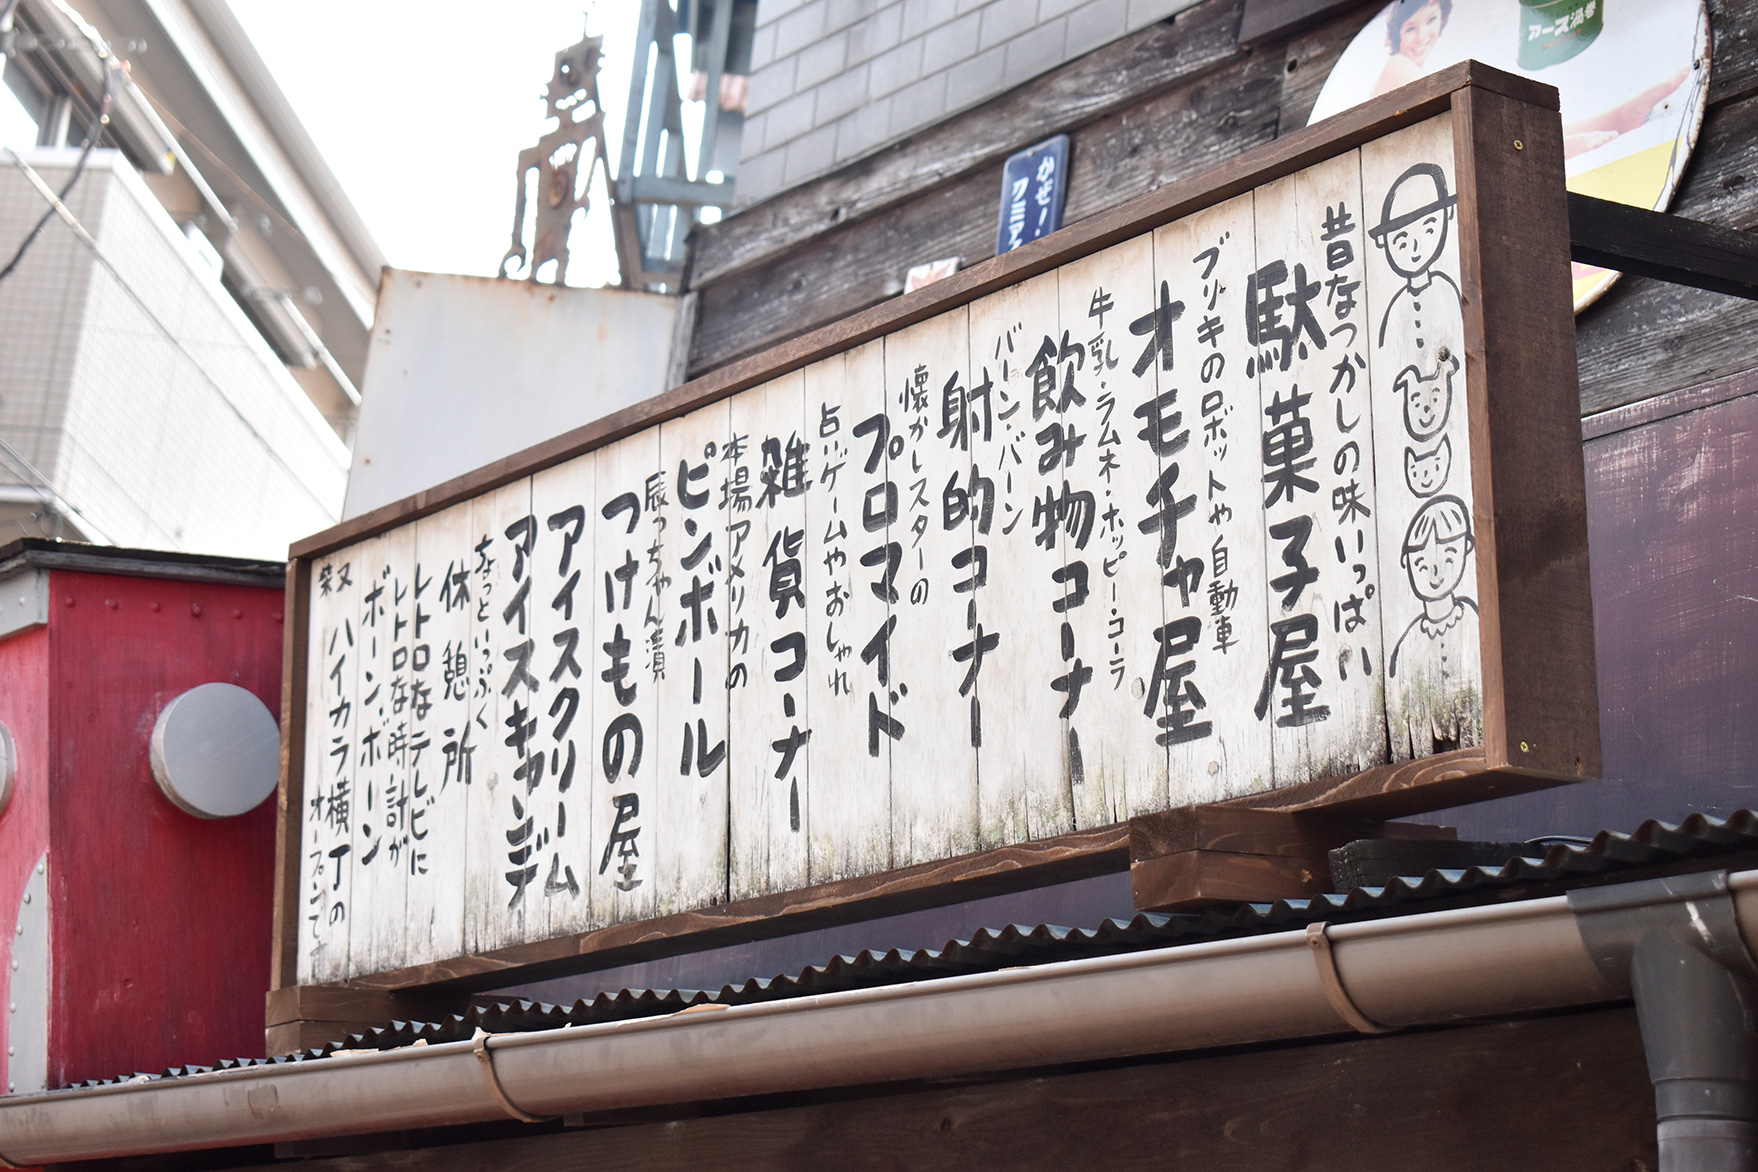 昔なつかしの味いっぱい
駄菓子屋
ブリキのロボットや自動車
オモチャ屋
牛乳・ラムネ・ホッピー・コーラ
飲み物コーナー
バーン・バーン
射的コーナー
懐かしスターの
プロマイド
占いゲームやおしゃれ
雑貨コーナー
本場アメリカの
ピンボール
辰っちゃん漬
つけもの屋
アイスクリーム
アイスキャンデー
ちょっといっぷく
休憩所
レトロなテレビに
レトロな時計が
ボーン、ボーン
ハイカラ横丁の
オープンです
かぜ!
アース渦巻